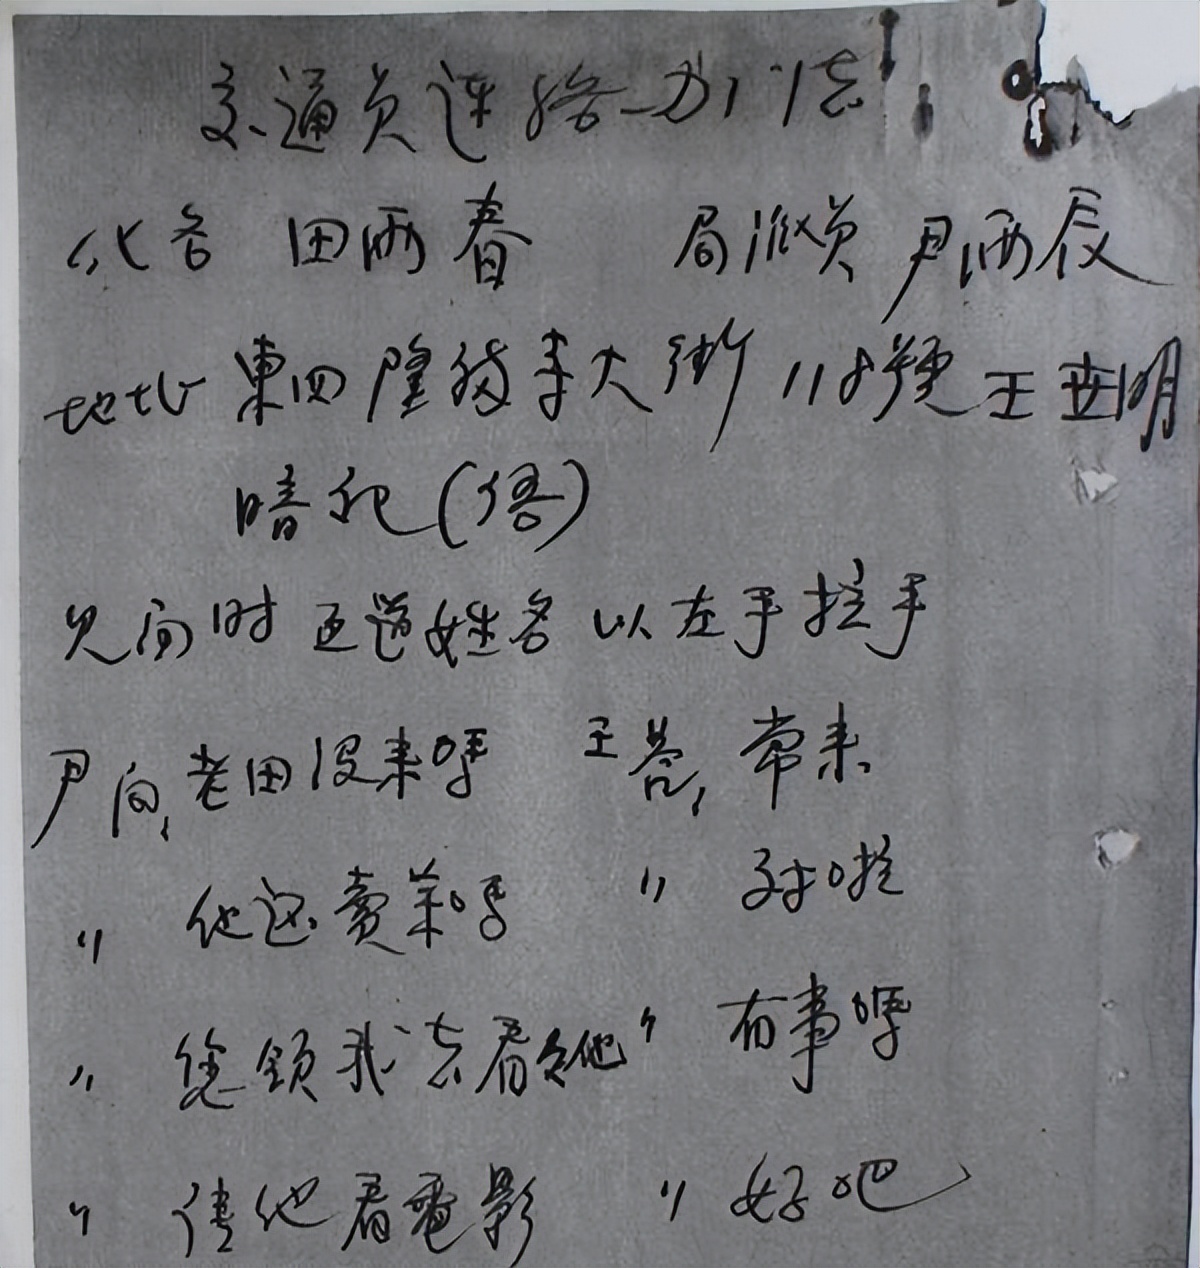 交通员连络办法
代名 田雨春 局派员 尹雨辰
地址 東四隆福寺大街 118號 王世明
暗记(语)
见面时互道姓名以左手拉手
尹问,老田没来吗 王答,常来
〃 他还賣菜吗 〃 对啦
〃 您领我去看看他 〃 有事吗
〃 请他看電影 〃 好吧